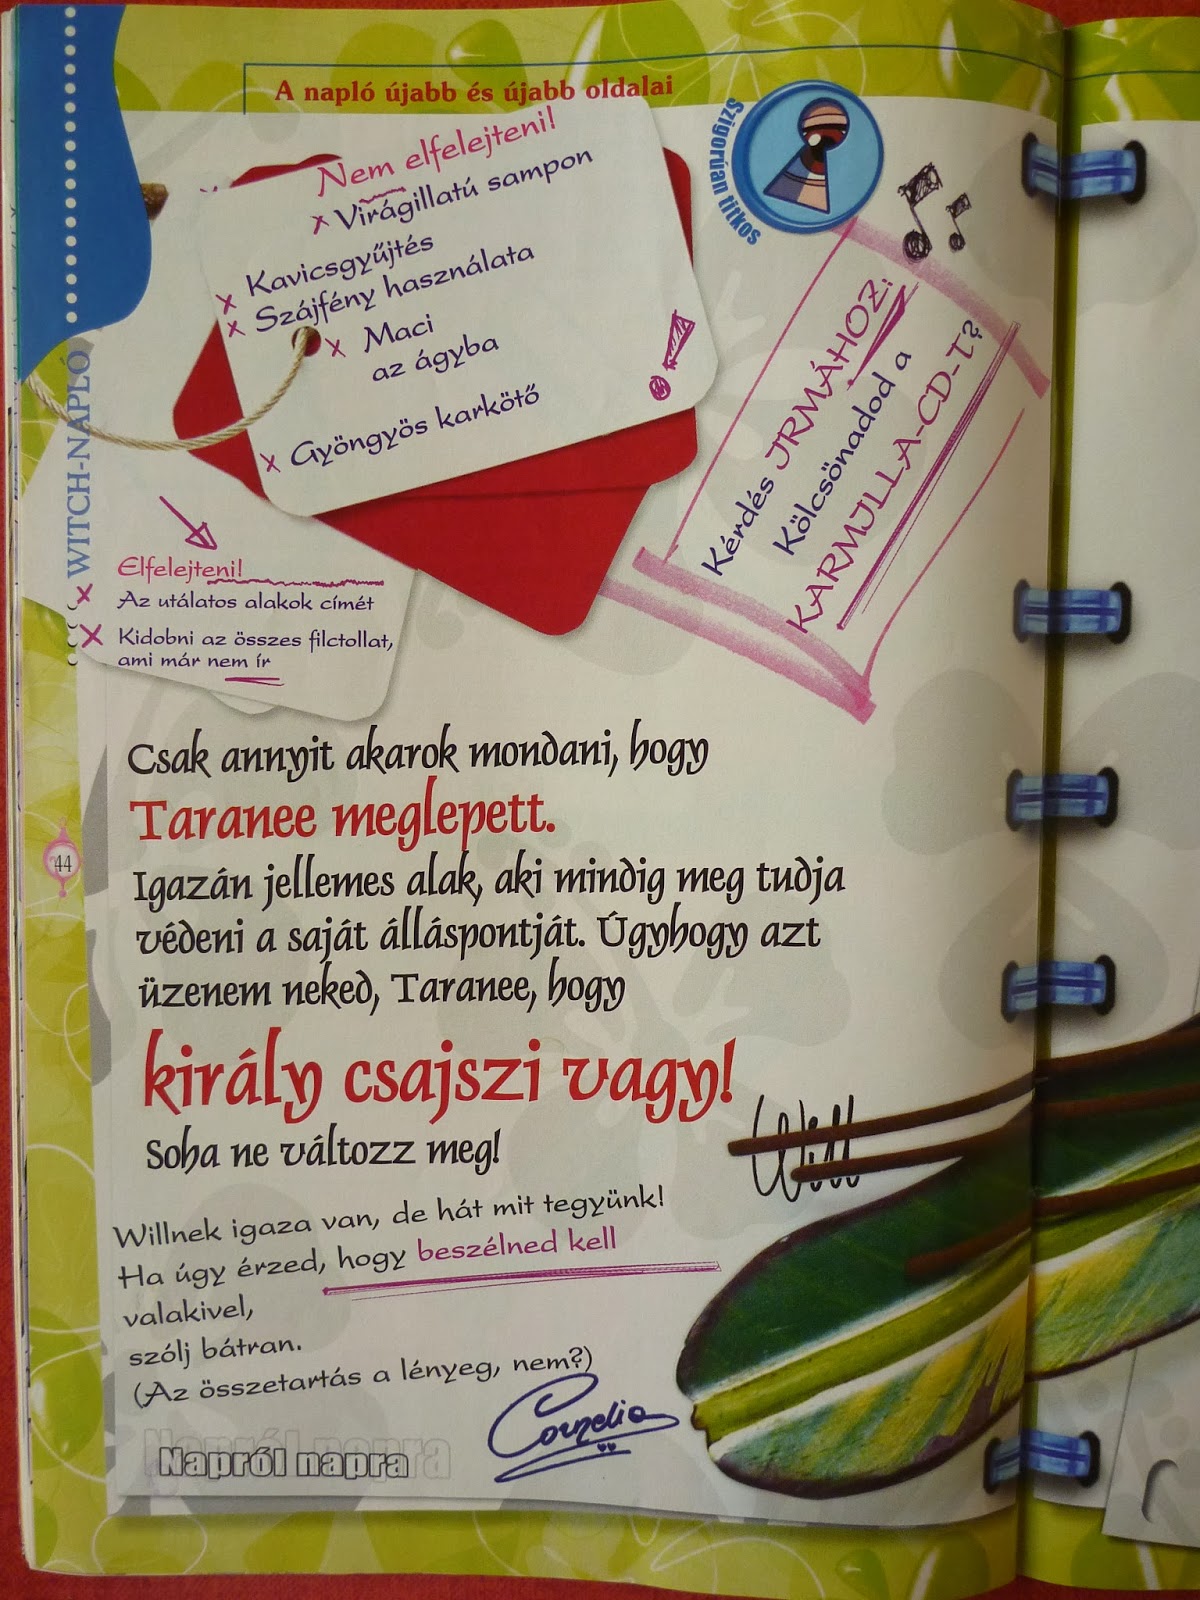 A napló újabb és újabb oldalai
Szigorúan titkos
Nem elfelejteni!
x Virágillatú sampon
x Kavicsgyűjtés
x Szájfény használata
x Maci
az ágyba
x Gyöngyös karkötő
!
Kérdés IRMÁHOZ:
Kölcsönadod a
KARMILLA-CD-T?
WITCH-NAPLÓ
Elfelejteni!
x Az utálatos alakok címét
x Kidobni az összes filctollat,
ami már nem ír
Csak annyit akarok mondani, hogy
Taranee meglepett.
Igazán jellemes alak, aki mindig meg tudja
védeni a saját álláspontját. Úgyhogy azt
üzenem neked, Taranee, hogy
király csajszi vagy!
Soha ne változz meg!
Will
44
Willnek igaza van, de hát mit tegyünk!
Ha úgy érzed, hogy beszélned kell
valakivel,
szólj bátran.
(Az összetartás a lényeg, nem?)
Cornelia
Napról napra